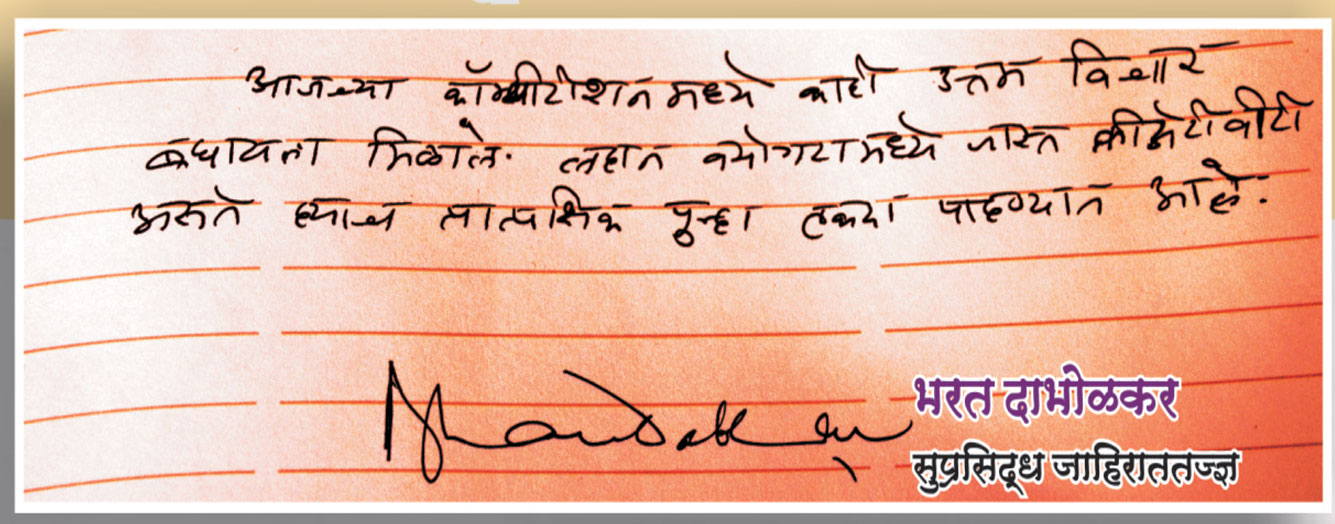 आजच्या कॉम्पीटीशन मध्ये काही उत्तम विचार
बघायला मिळाले. लहान वयोगटामध्ये जास्त क्रीएटीवीटी
असते ह्याच प्रात्यक्षिक पुन्हा एकदा पाहण्यात आले.
भरत दाभोळकर
सुप्रसिद्ध जाहिराततज्ज्ञ